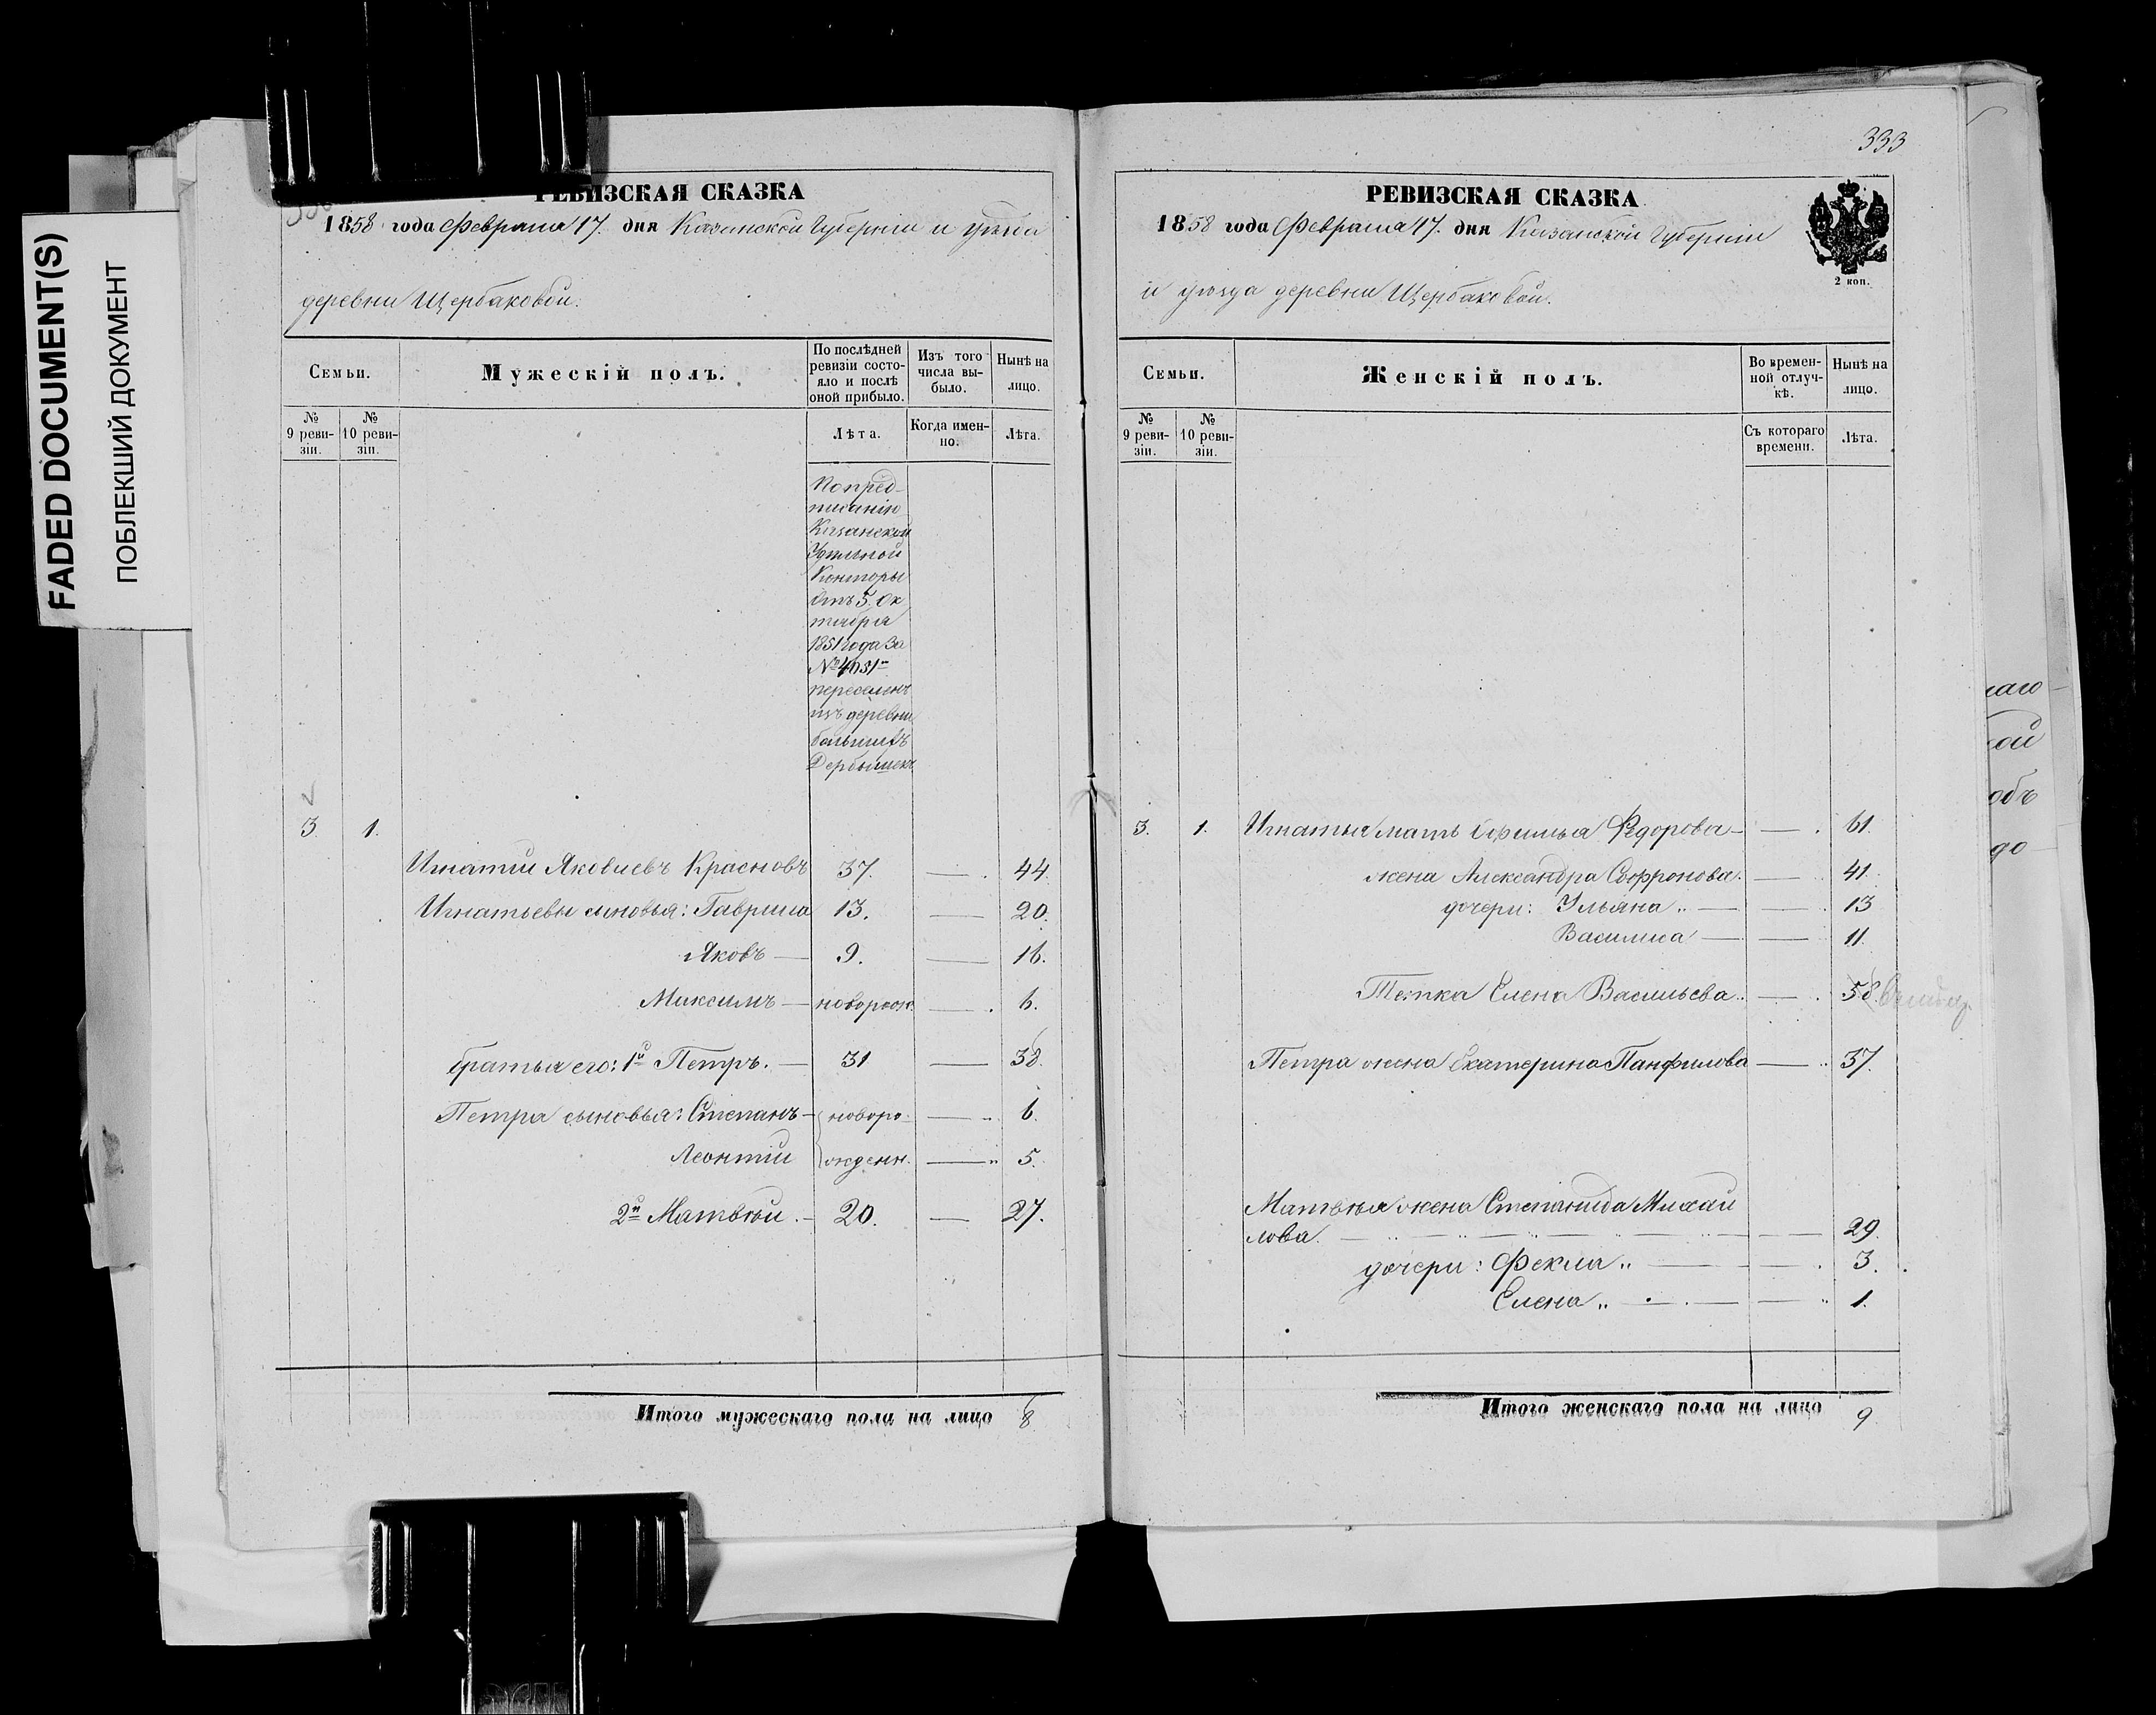 FADED DOCUMENT(S)
ПОБЛЕКШИЙ ДОКУМЕНТ
РЕВИЗСКАЯ СКАЗКА
1858 года Февраля 17. дня Казанской Губерніи и уѣзда
деревни Щербаковой.
Семьи.
Мужескій полъ.
По послѣдней ревизіи состояло и послѣ оной прибыло.
Изъ того числа выбыло.
Нынѣ на лицо.
№ 9 ревизіи.
№ 10 ревизіи.
Лѣта.
Когда именно.
Лѣта.
По пред-
писанію
Казанской
Удѣльной
Конторы
отъ 5. Ок
тября
1851 года за
№ 4031
переселенъ
изъ деревни
большихъ
Дербышекъ
3. 1.
Игнатій Яковлевъ Красновъ 37. — 44.
Игнатьевы сыновья: Гаврила 13. — 20.
Яковъ — 9. — 16.
Максимъ — новорож. — 6.
братья его: 1й Петръ. — 31 — 38.
Петра сыновья: Степанъ — новоро — 6.
Леонтій жденн. — 5.
2й Матвѣй. — 20. — 27.
Итого мужескаго пола на лицо 8
333
РЕВИЗСКАЯ СКАЗКА
1858 года Февраля 17. дня Казанской Губерніи
и уѣзда деревни Щербаковой.
2 коп.
Семьи.
Женскій полъ.
Во временной отлучкѣ.
Нынѣ на лицо.
№ 9 ревизіи.
№ 10 ревизіи.
Съ котораго времени.
Лѣта.
3. 1. Игнатья мать Федорова — — 61.
жена Александра Софронова. — 41.
дочери: Ульяна — — 13
Василиса — — 11.
Тетка Елена Васильева — 58.
Петра жена Екатерина Панфилова — 37.
Матвѣя жена Степанида Михай
лова. — 29.
дочери: Фекла — — 3.
Елена — — 1.
Итого женскаго пола на лицо 9